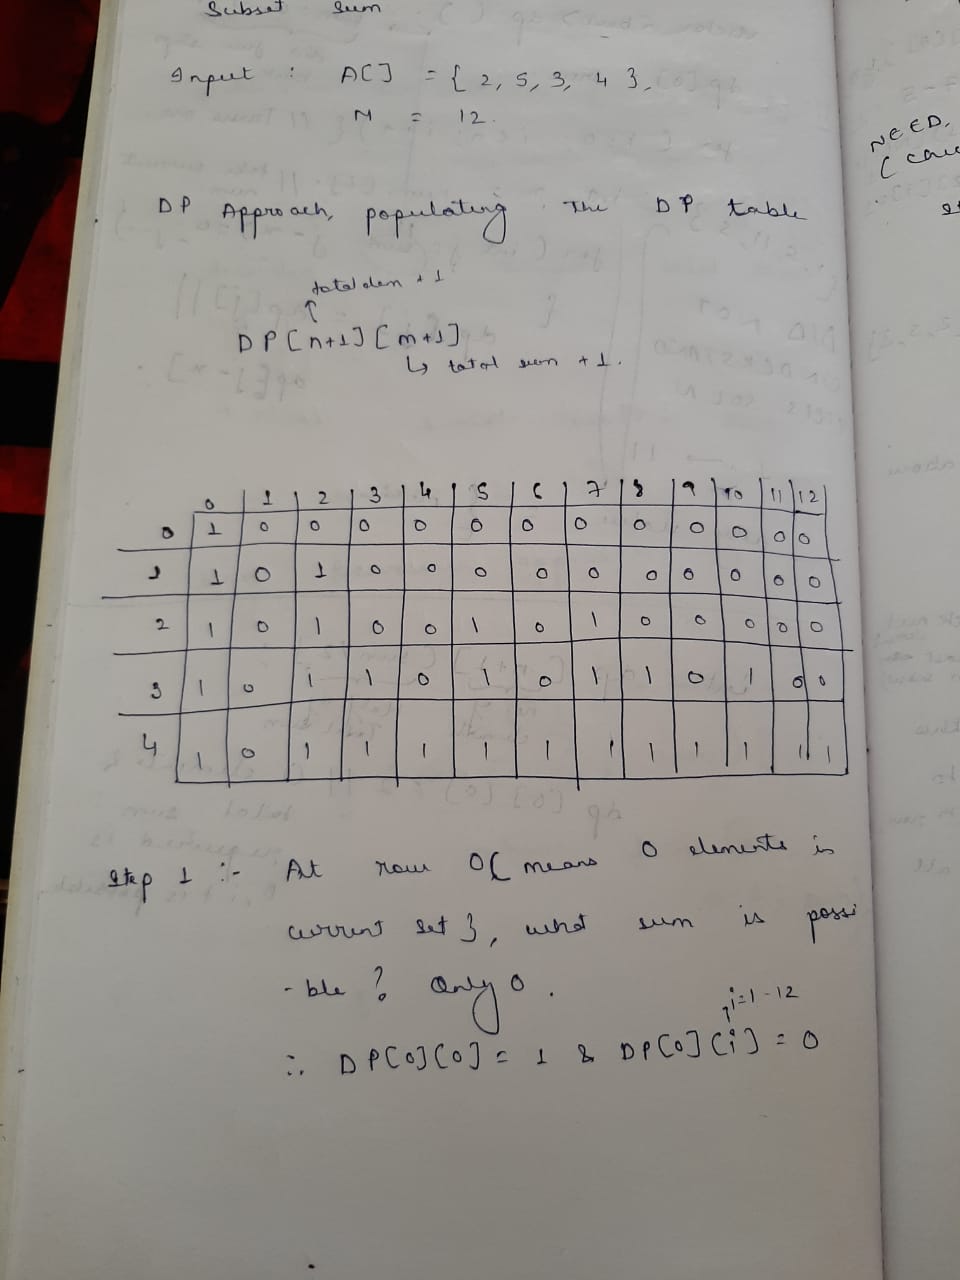 Subset Sum
Input : A[] = { 2, 5, 3, 4 },
M = 12.
DP Approach, populating The DP table
total elem + 1
DP[n+1][m+1]
↳ total sum + 1.
0 1 2 3 4 5 6 7 8 9 10 11 12
0 1 0 0 0 0 0 0 0 0 0 0 0 0
1 1 0 1 0 0 0 0 0 0 0 0 0 0
2 1 0 1 0 0 1 0 1 0 0 0 0 0
3 1 0 1 1 0 1 0 1 1 0 1 0 0
4 1 0 1 1 1 1 1 1 1 1 1 1 1
Step 1 :- At row 0 { means 0 elements is
current set }, what sum is possi
-ble ? Only 0.
i=1-12
∴ DP[0][0] = 1 & DP[0][i] = 0
NEED,